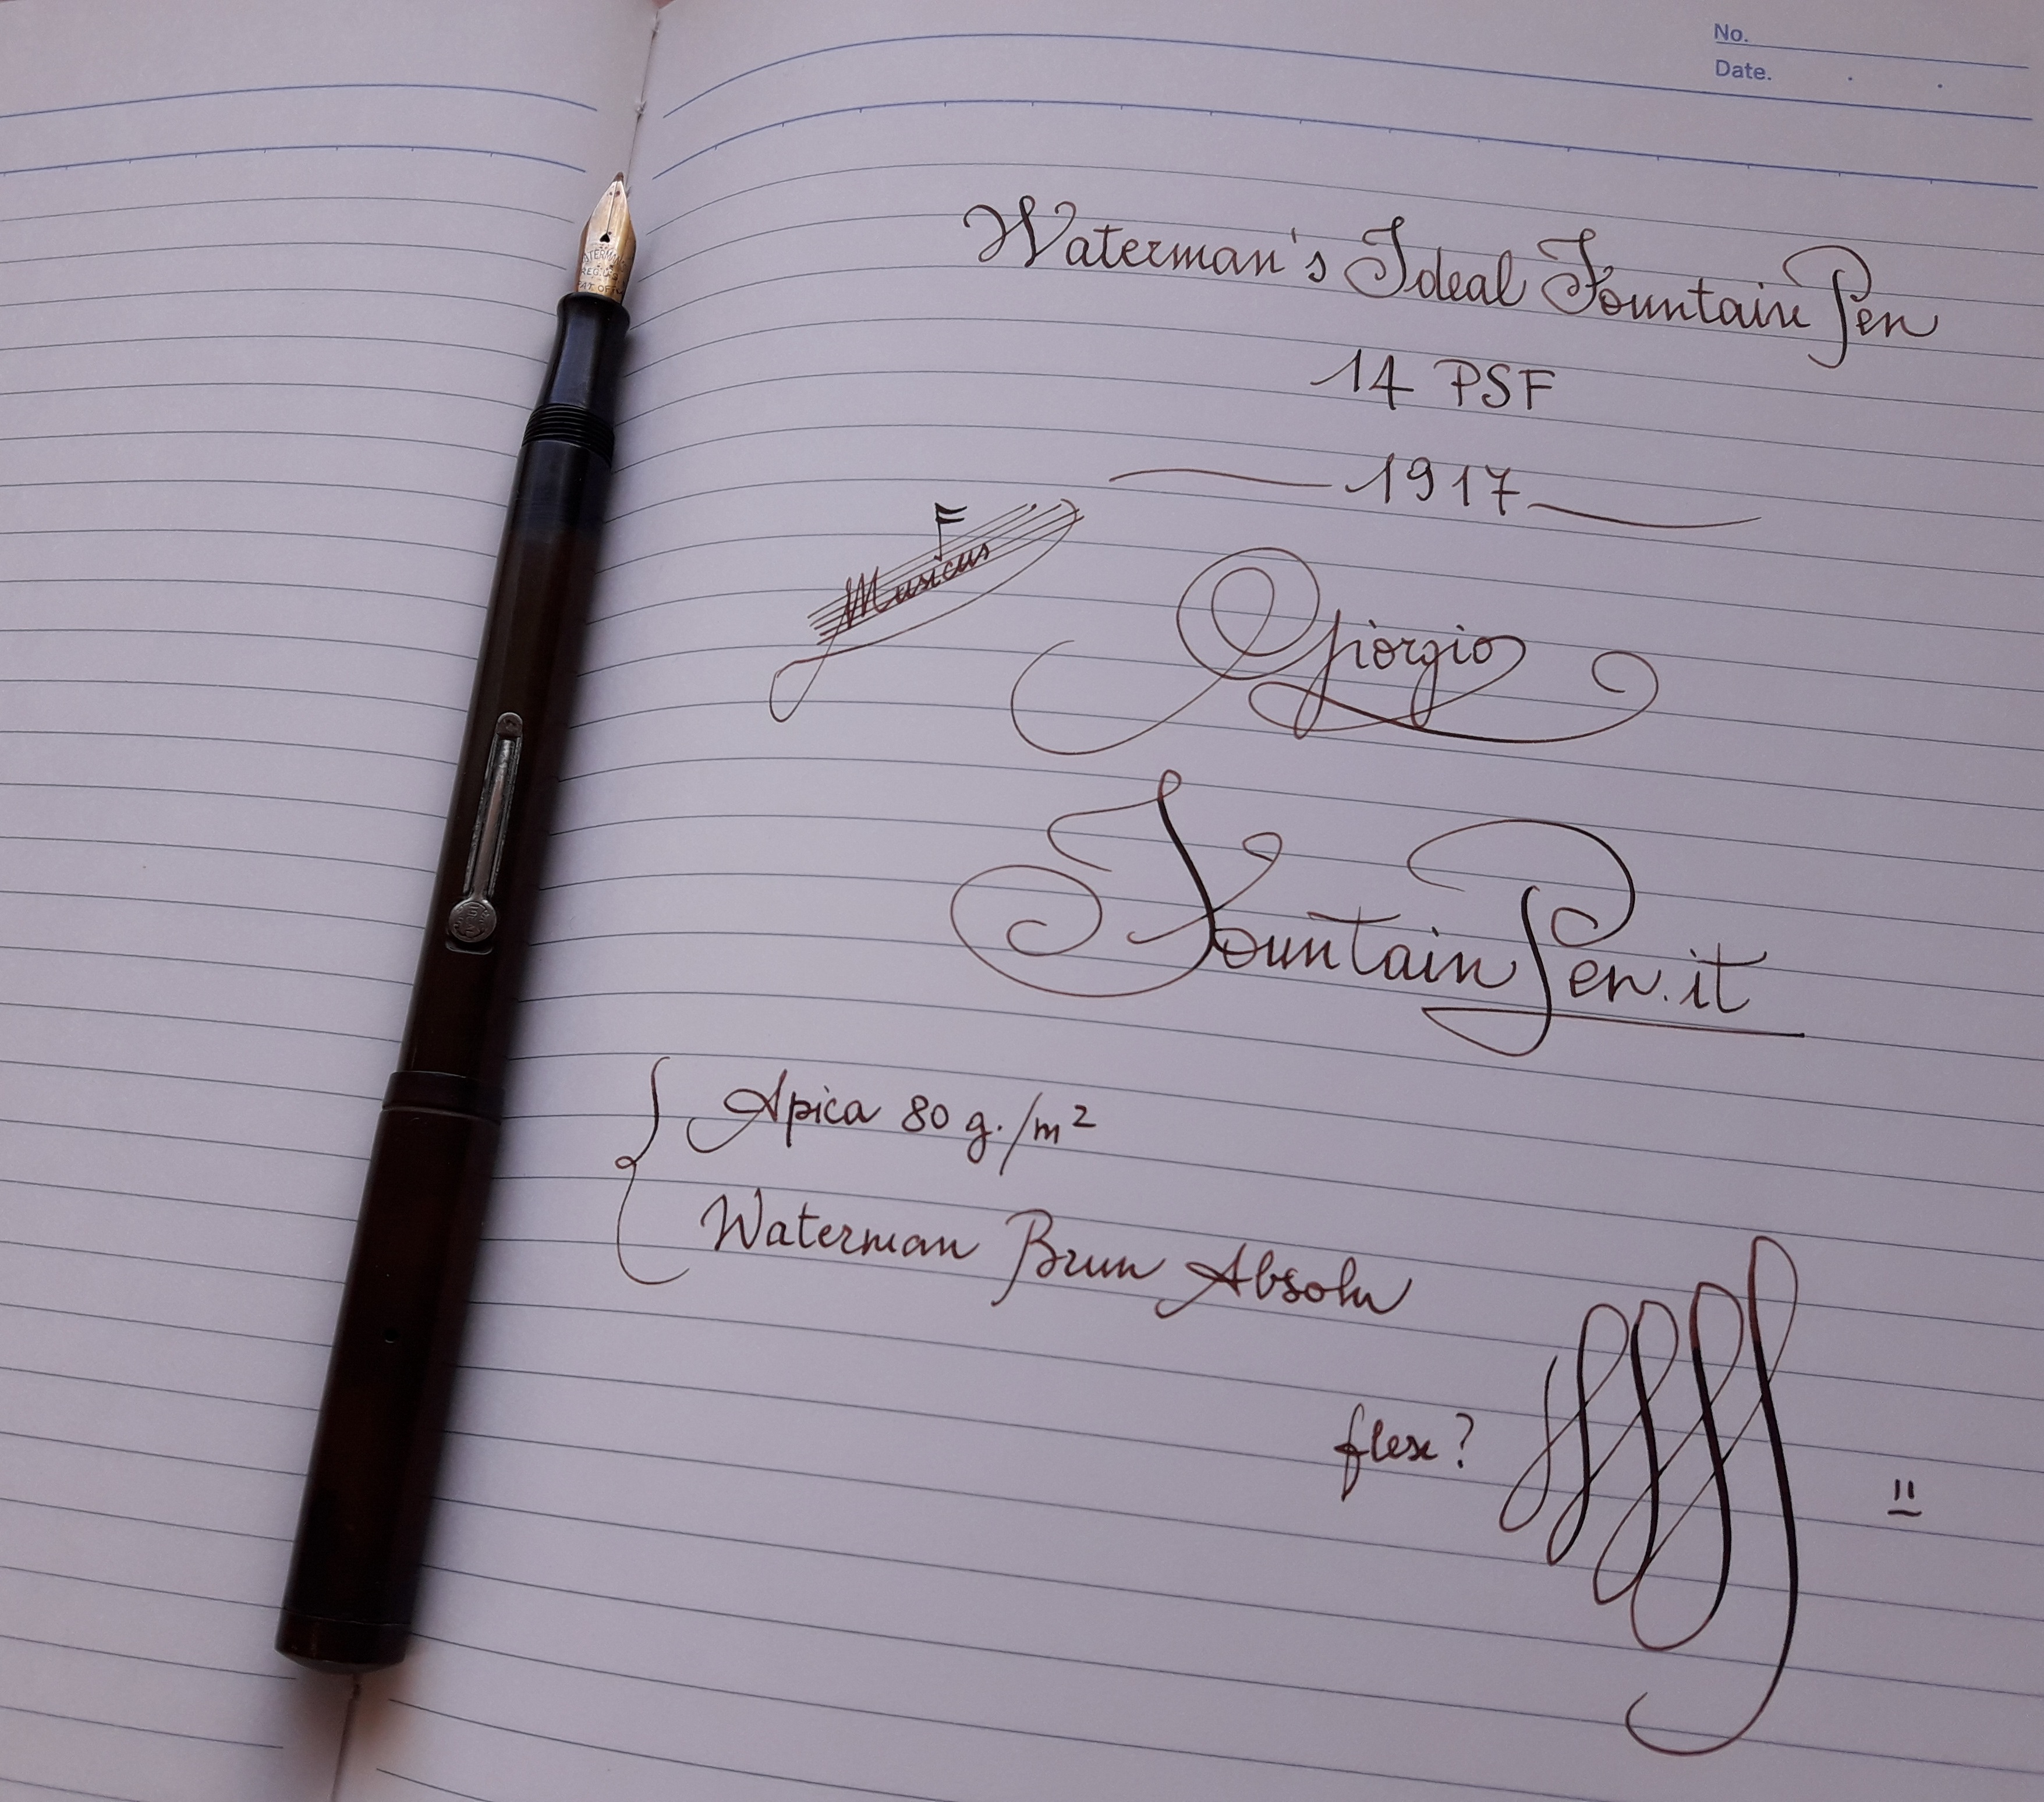 No.
Date.
Waterman's Ideal Fountain Pen
14 PSF
1917
Musicus
Giorgio
FountainPen.it
Apica 80 g./m²
Waterman Brun Absolu
flex?